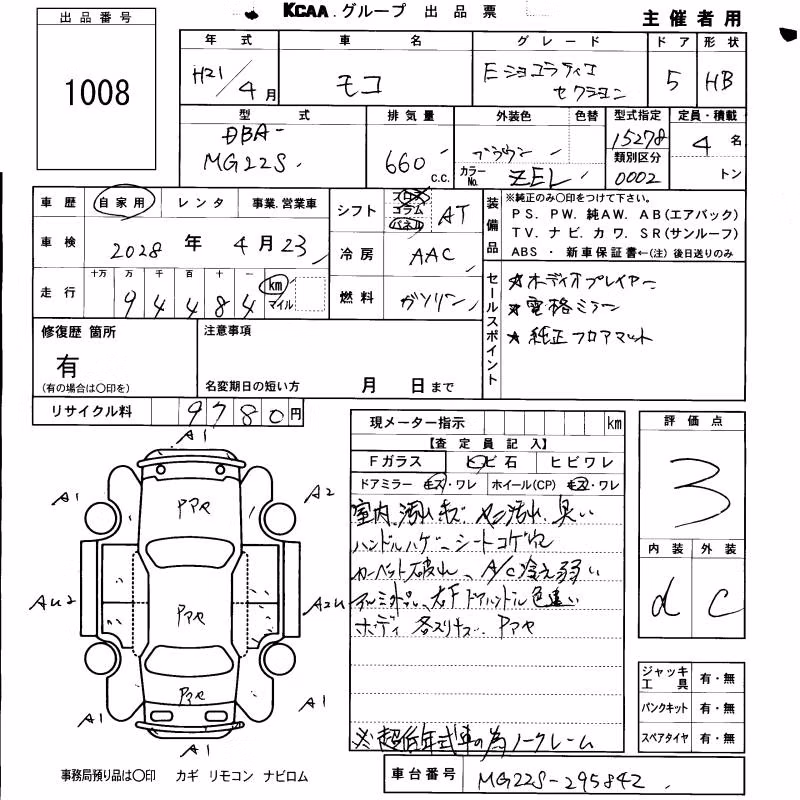 KCAA.グループ 出品票
主催者用
出品番号
1008
年式 車名 グレード ドア 形状
H21/4月 モコ Eショコラティエ セレクション 5 HB
型式 排気量 外装色 色替 型式指定 定員・積載
DBA-
MG22S 660 c.c. ブラウン 15278 4名
カラーNo. ZEL 類別区分 0002 トン
車歴 自家用 レンタ 事業.営業車
シフト フロア コラム パネル AT
車検 2028年4月23
冷房 AAC
走行 十万 万 千 百 十 一
94484 km マイル
燃料 ガソリン
装備品
※純正のみ〇印をつけて下さい。
PS. PW. 純AW. AB(エアバック)
TV. ナビ. カワ. SR(サンルーフ)
ABS ・ 新車保証書←(注) 後日送りのみ
セールスポイント
★オーディオプレイヤー
★電格ミラー
★純正フロアマット
修復歴 箇所
有
(有の場合は〇印を)
注意事項
名変期日の短い方 月 日まで
リサイクル料 9780円
現メーター指示 km
【査定員記入】
Fガラス ヒビ石 ヒビワレ
ドアミラー キズ・ワレ ホイール(CP) キズ・ワレ
室内 汚れ キズ ヤニ汚れ 臭い
ハンドルハゲ、シートコゲ穴
カーペット破れ、A/C冷え弱い
アルミ社外品、右Fドアハンドル色違い
ボディ 各スリキズ. Pアセ
※超低年式車の為ノークレーム
評価点
3
内装 外装
d C
ジャッキ工具 有・無
パンクキット 有・無
スペアタイヤ 有・無
A1
A1 Pアセ A2
AU2 Pアセ A2U
A1 Pアセ A1
A1
事務局預り品は〇印 カギ リモコン ナビロム
車台番号 MG22S-295842